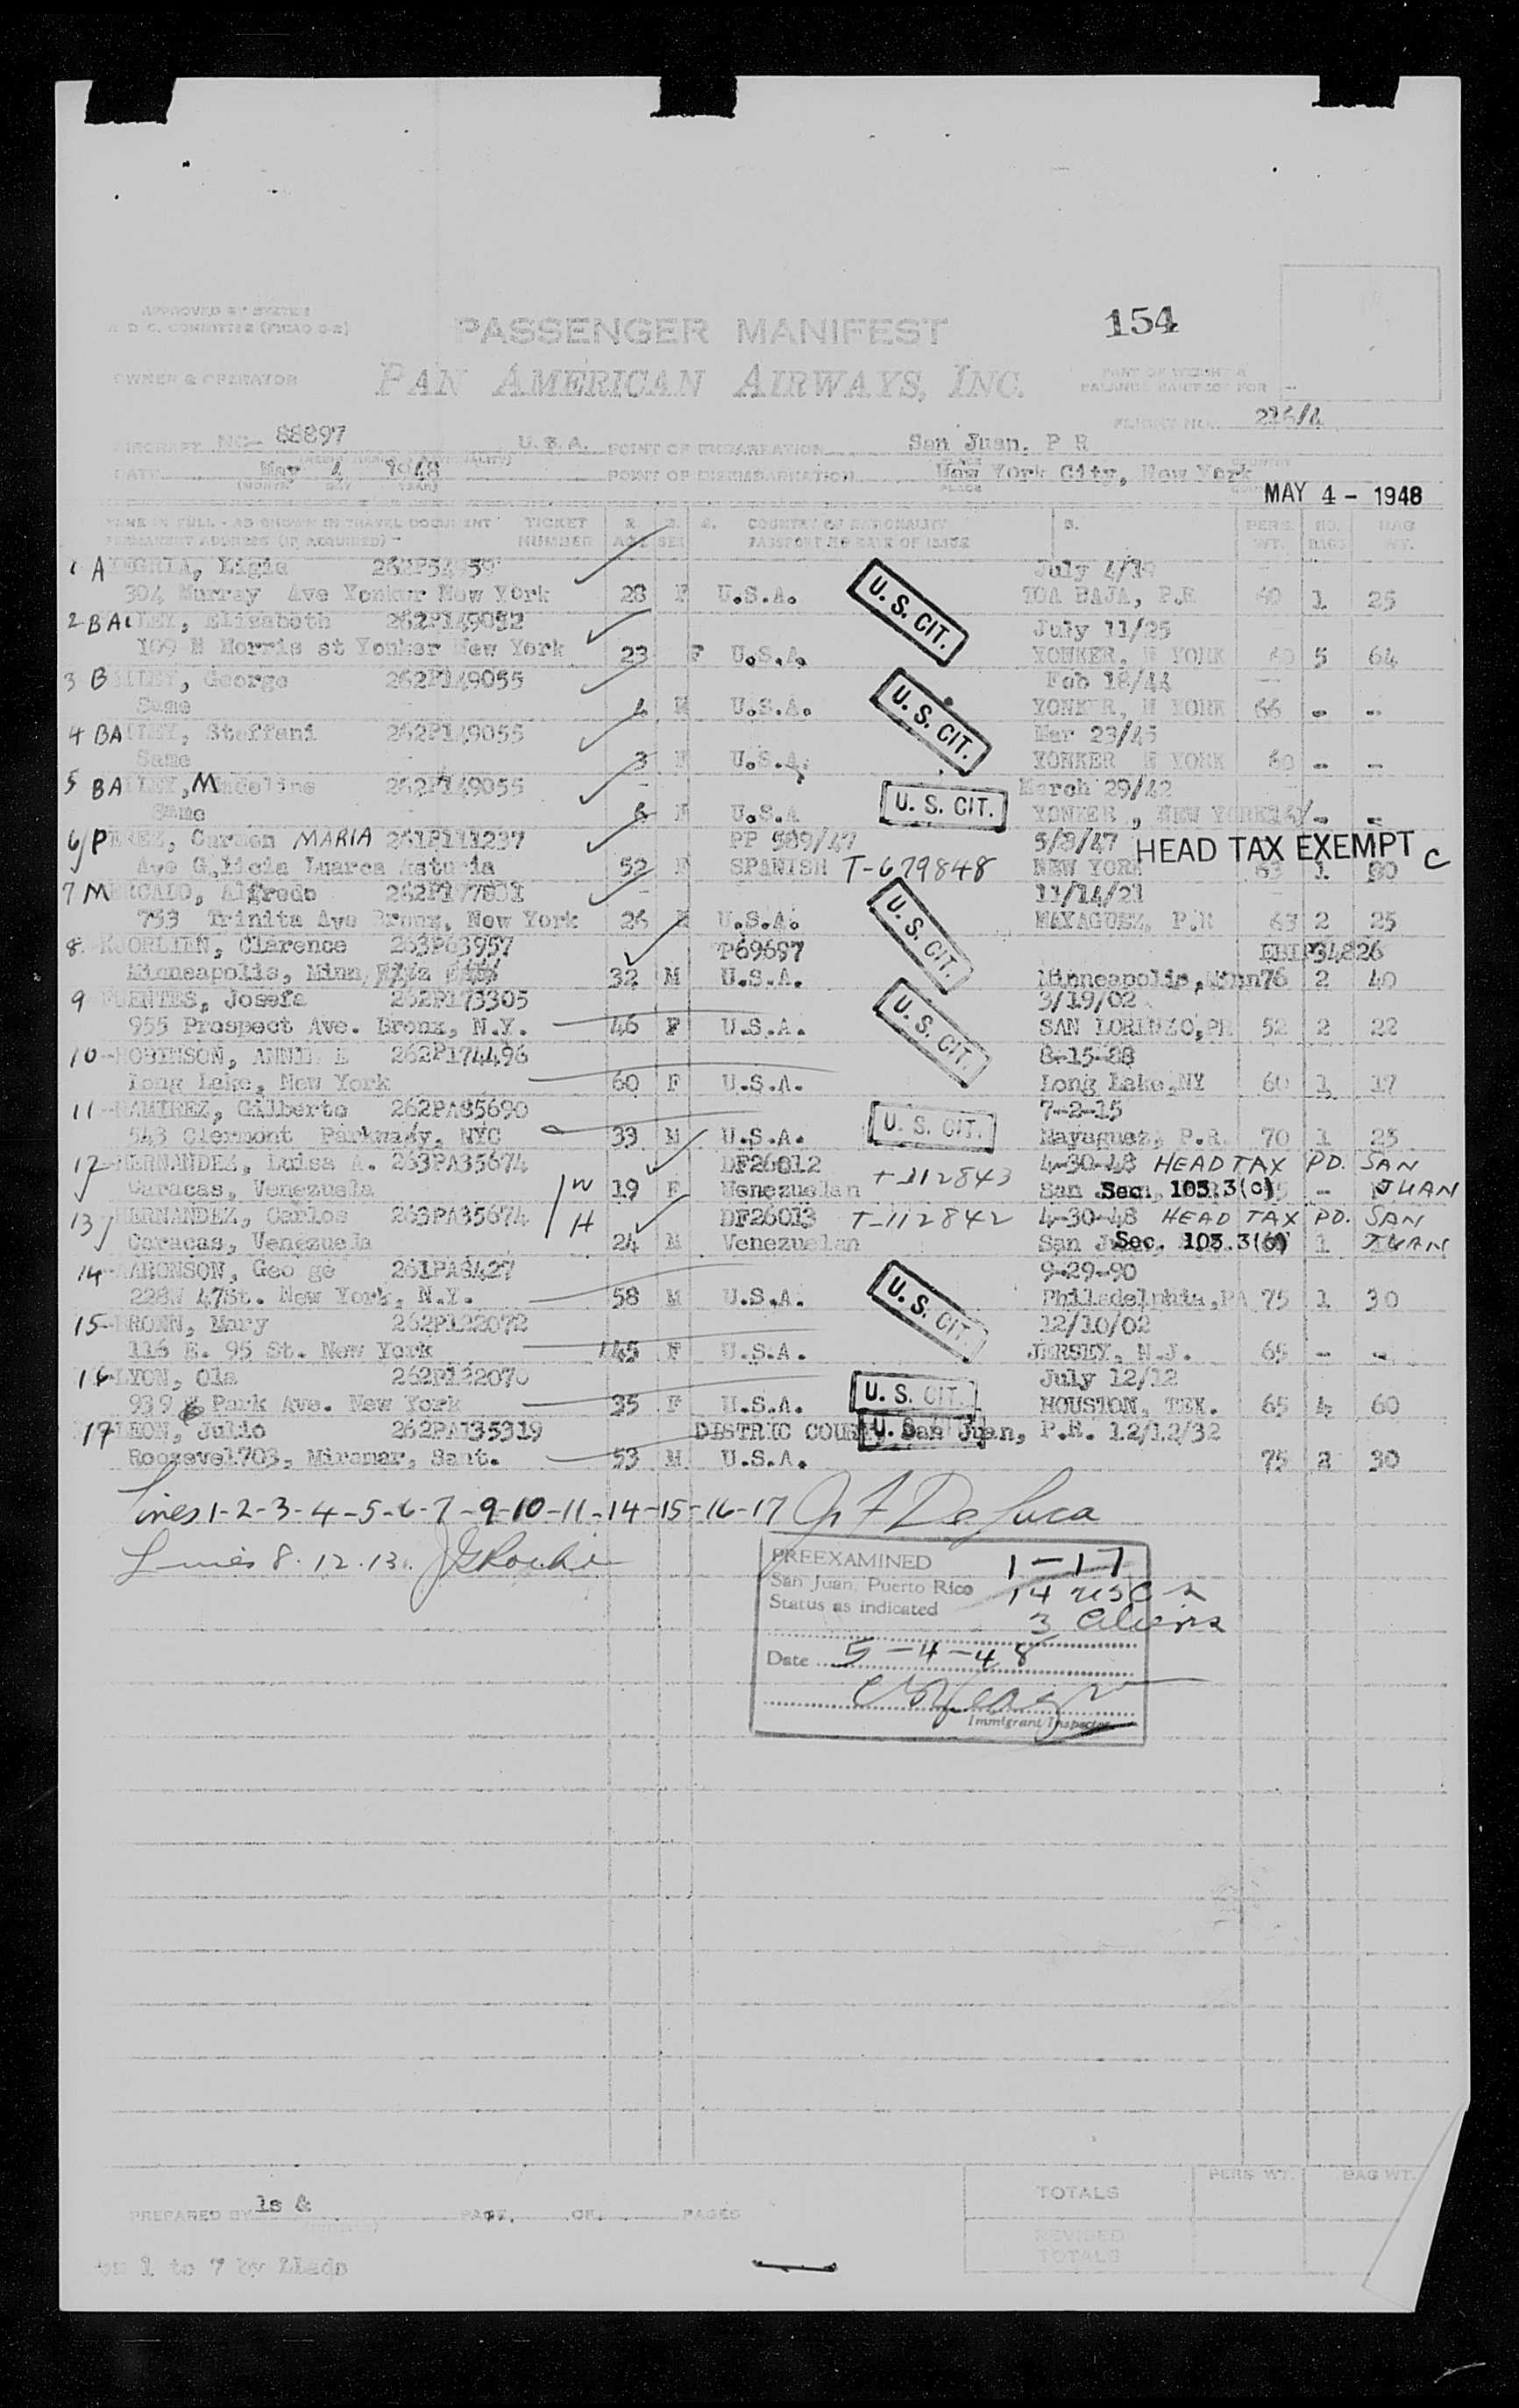 154
APPROVED BY SYSTEM
A D C. COMMITTEE (PICAO 0-2)
PASSENGER MANIFEST
OWNER & OPERATOR
PAN AMERICAN AIRWAYS, INC.
PART OF WEIGHT &
BALANCE MANIFEST FOR
FLIGHT NO. 216/4
AIRCRAFT NC- 88897 U.S.A. POINT OF EMBARKATION San Juan. P R
DATE May 4 1948 POINT OF DISEMBARKATION New York City, New York
(MONTH DAY YEAR) PLACE
MAY 4 - 1948
NAME IN FULL - AS SHOWN IN TRAVEL DOCUMENT TICKET COUNTRY OF NATIONALITY PERS. NO. BAG
PERMANENT ADDRESS (IF REQUIRED) - NUMBER AGE SEX PASSPORT NO DATE OF ISSUE WT. BAGS WT.
1 ALEGRIA, Ligia July 4/19
304 Murray Ave Yonker New York 28 F U.S.A. U. S. CIT. TOA BAJA, P.R 1 25
2 BAILEY, Elizabeth 262P149052 July 11/25
109 N Morris st Yonker New York 23 F U.S.A. YONKER, N YORK 5 64
3 BAILEY, George 262P149055 Feb 18/44
Same 4 M U.S.A. U. S. CIT. YONKER, N YORK 66 - -
4 BAILEY, Steffani 262P149055 Mar 23/45
Same 3 F U.S.A. YONKER N YORK 60 - -
5 BAILEY, Madeline 262P149055 March 29/42
Same 6 F U.S.A U. S. CIT. YONKER, NEW YORK - -
6 PEREZ, Carmen MARIA 261P111237 PP 589/47 5/8/47 HEAD TAX EXEMPT C
Ave Galicia Luarca Asturia 52 F SPANISH T-679848 NEW YORK 63 1
7 MERCADO, Alfredo 11/14/21
753 Trinita Ave Bronx, New York 26 M U.S.A. U. S. CIT. MAYAGUEZ, P.R 63 2 25
8 KJORLIEN, Clarence 263P63957 P69697
Minneapolis, Minn 32 M U.S.A. Minneapolis, Minn 76 2 40
9 FUENTES, Josefa 262P173305 3/19/02
955 Prospect Ave. Bronx, N.Y. 46 F U.S.A. U. S. CIT. SAN LORENZO, PR 52 2 22
10 ROBINSON, ANNIE E 262P174496 8-15-88
Long Lake, New York 60 F U.S.A. Long Lake, NY 60 1 17
11 RAMIREZ, Gilberto 262PA85690 7-2-15
543 Clermont Parkway, NYC 33 M U.S.A. U. S. CIT. Mayaguez, P.R. 70 1 25
12 HERNANDEZ, Luisa A. 263PA35674 DF26012 T-112843 4-30-48 HEAD TAX PD. SAN
Caracas, Venezuela W 19 F Venezuelan San Sec. 103.3(c) - JUAN
13 HERNANDEZ, Carlos 263PA35674 DF26013 T-112842 4-30-48 HEAD TAX PD. SAN
Caracas, Venezuela H 24 M Venezuelan San Sec. 103.3(c) 1 JUAN
14 AARONSON, George 261PA8427 9-29-90
228W 47St. New York, N.Y. 58 M U.S.A. U. S. CIT. Philadelphia, PA 75 1 30
15 Mary 262P122072 12/10/02
116 E. 95 St. New York 45 F U.S.A. JERSEY, N.J. 65 - -
16 LYON, Ola 262P122070 July 12/12
939 Park Ave. New York 35 F U.S.A. U. S. CIT. HOUSTON, TEX. 65 4 60
17 LEON, Julio 262PA135319 DISTRIC COURT, San Juan, P.R. 12/12/32
Roosevel703, Miramar, Sant. 53 M U.S.A. 75 2 30
Lines 1-2-3-4-5-6-7-9-10-11-14-15-16-17 De Luca
Lines 8. 12. 13.
PREEXAMINED 1-17
San Juan, Puerto Rico 14 USC
Status as indicated 3 aliens
Date 5-4-48
Immigrant Inspector
PERS WT. BAG WT.
TOTALS
PREPARED BY ls & PAGE OF PAGES
REVISED
TOTALS
1 to 7 by Llado